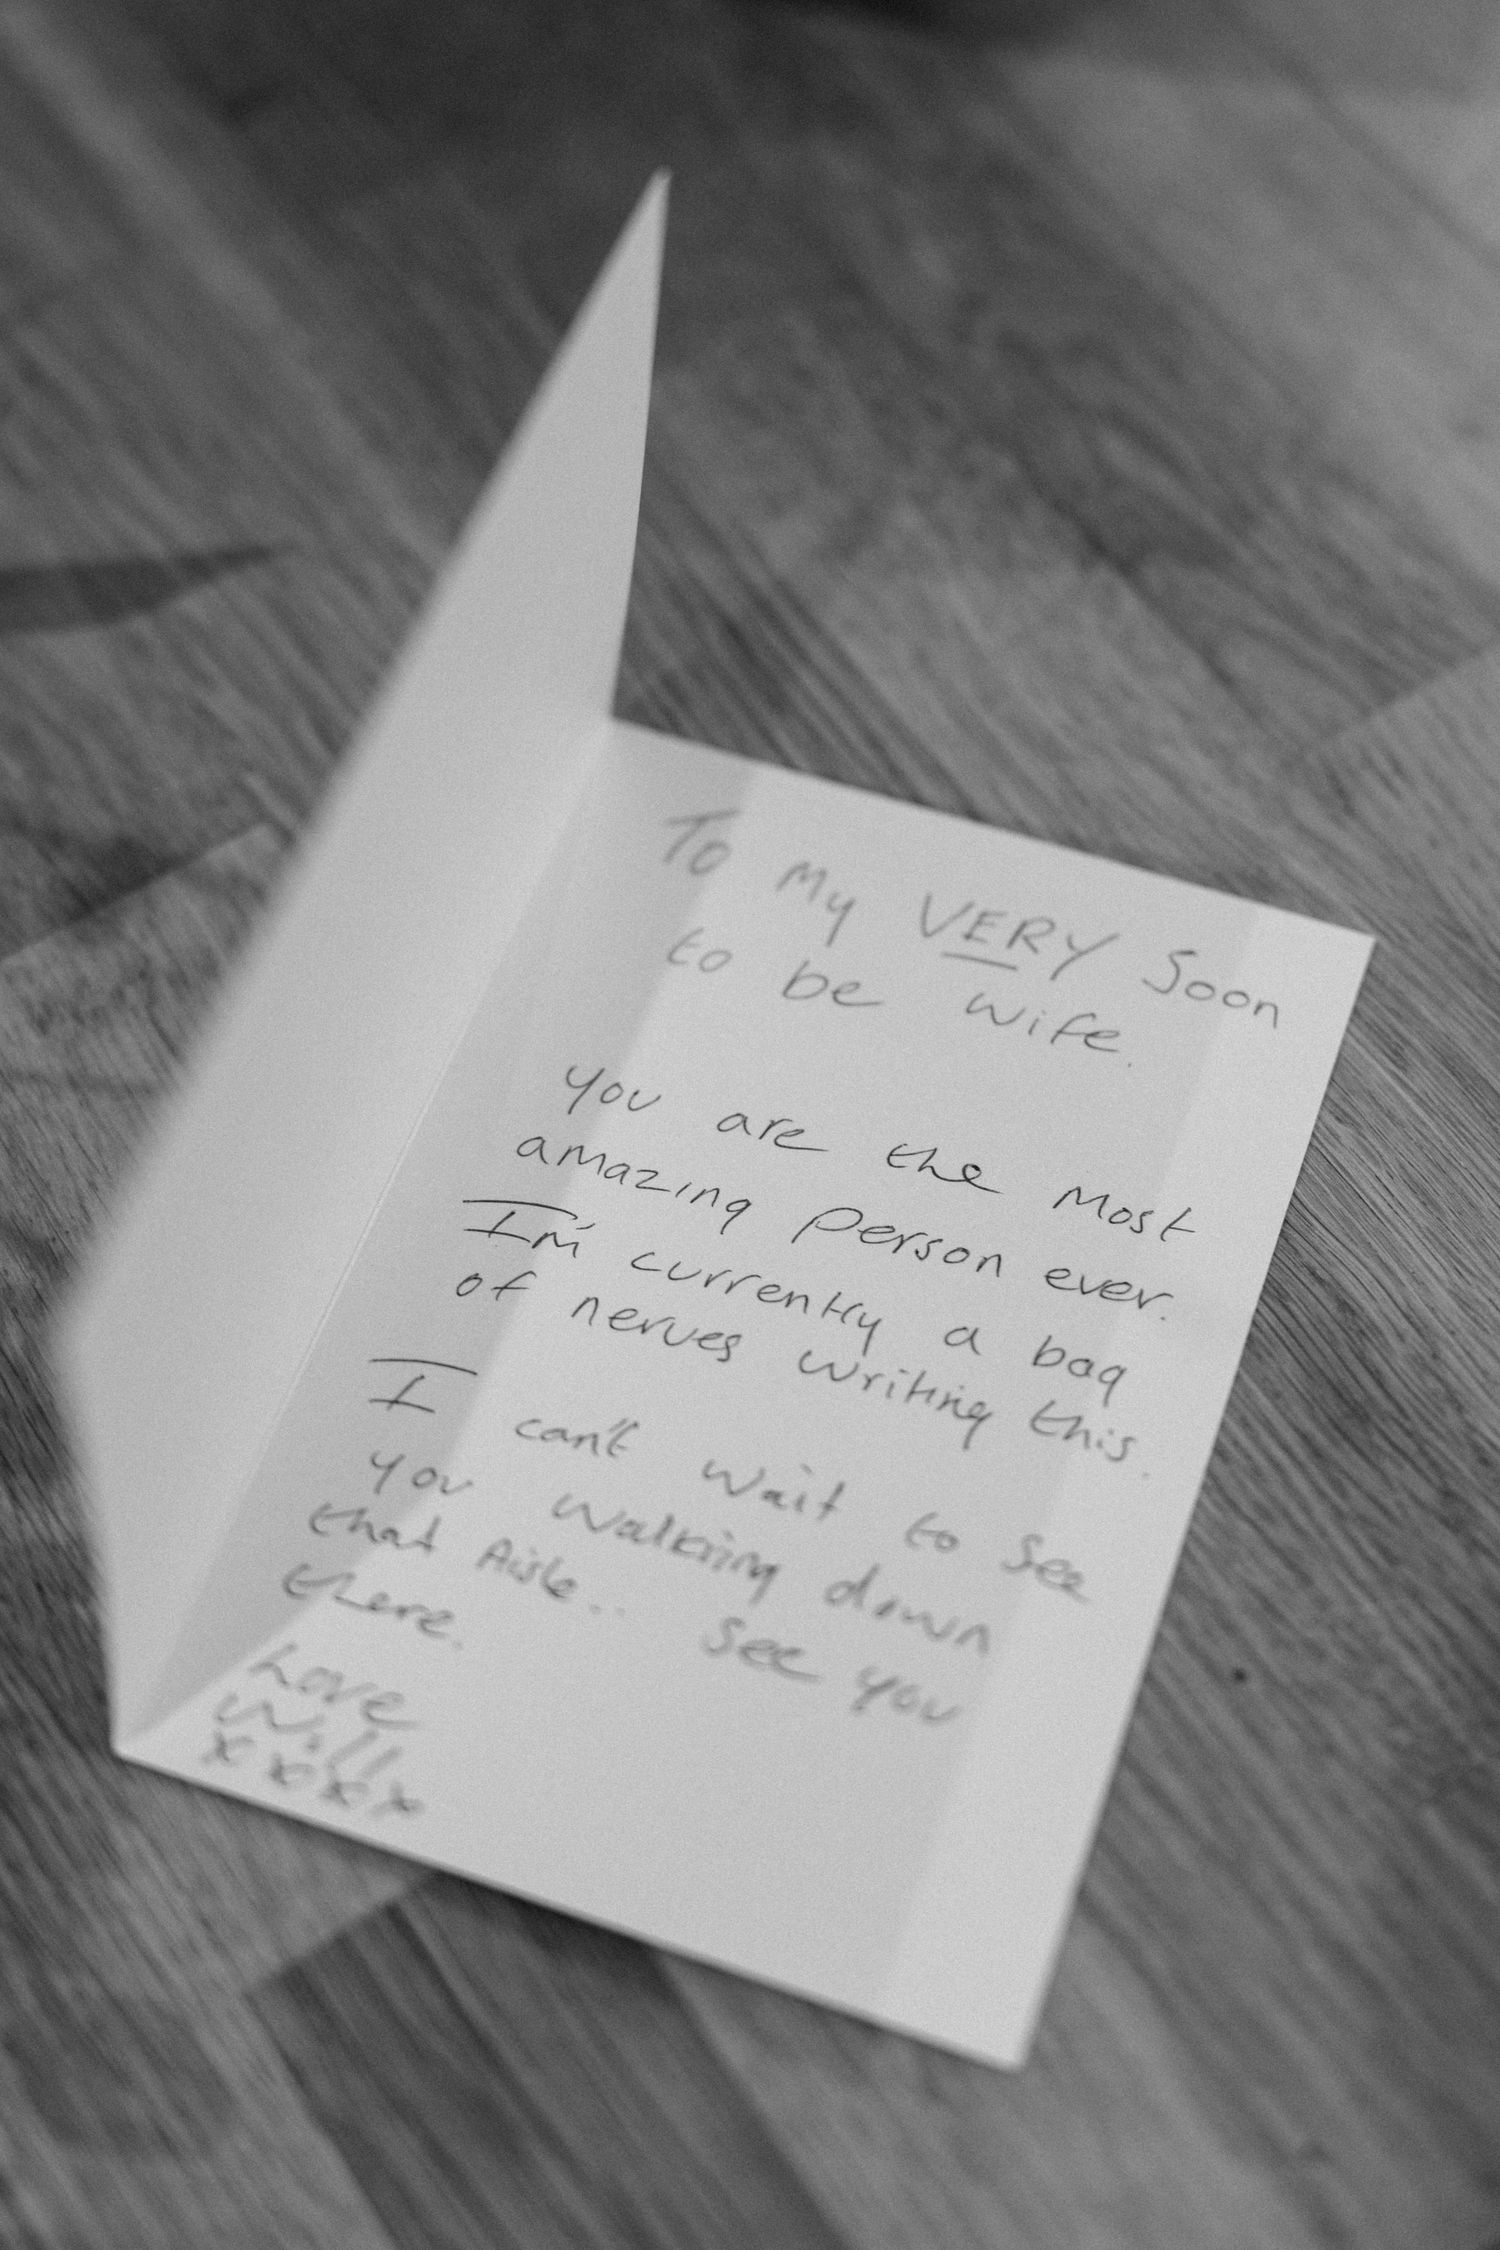 To My VERY Soon
to be wife.
You are the most
amazing person ever.
I'm currently a bag
of nerves writing this.
I can't wait to see
you walking down
that Aisle.. See you
there.
Love
Will
xxxx